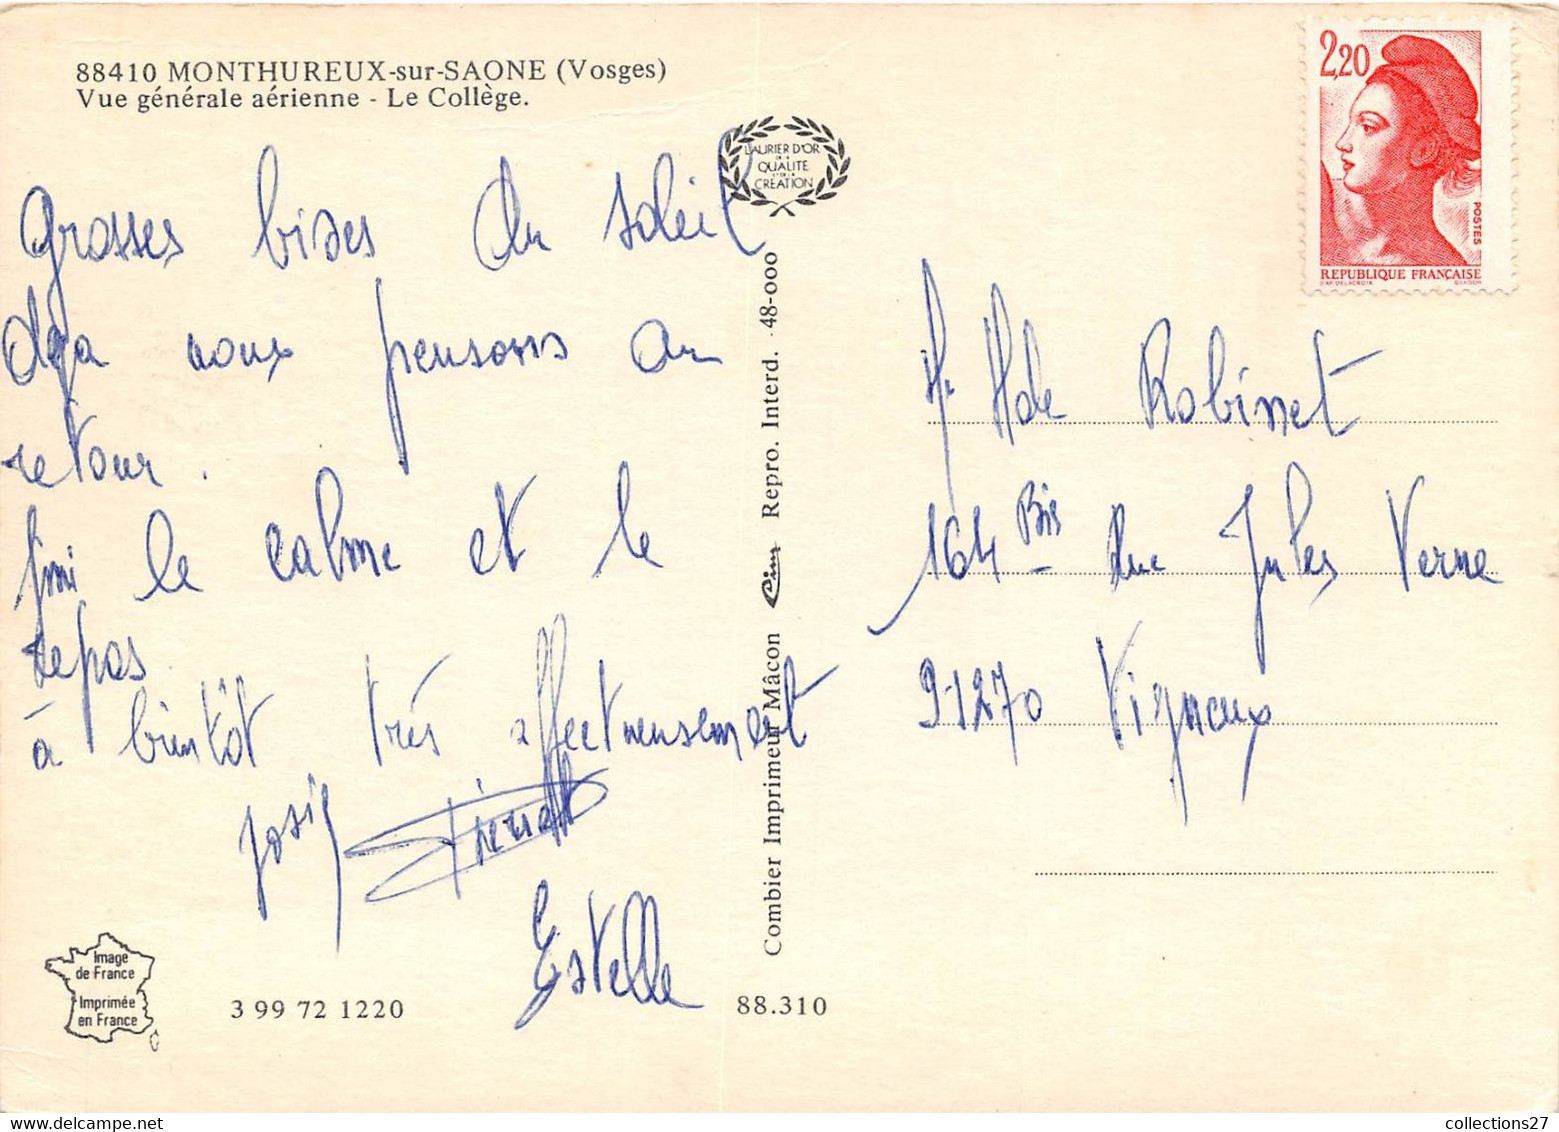 88410 MONTHUREUX-sur-SAONE (Vosges)
Vue générale aérienne - Le Collège.
Grosses bises du soleil
déja nous pensons au
retour.
fini le calme et le
repos
à bientôt très affectueusement
Josie Pierrot
Estelle
Image
de France
Imprimée
en France
3 99 72 1220
88.310
LAURIER D'OR
DE LA
QUALITE
ET DE LA
CREATION
Combier Imprimeur Mâcon Cim Repro. Interd. 48-000
2,20
POSTES
REPUBLIQUE FRANÇAISE
D'AP. DELACROIX GANDON
Mr Mde Robinet
164 Bis Rue Jules Verne
91270 Vigneux
collections27